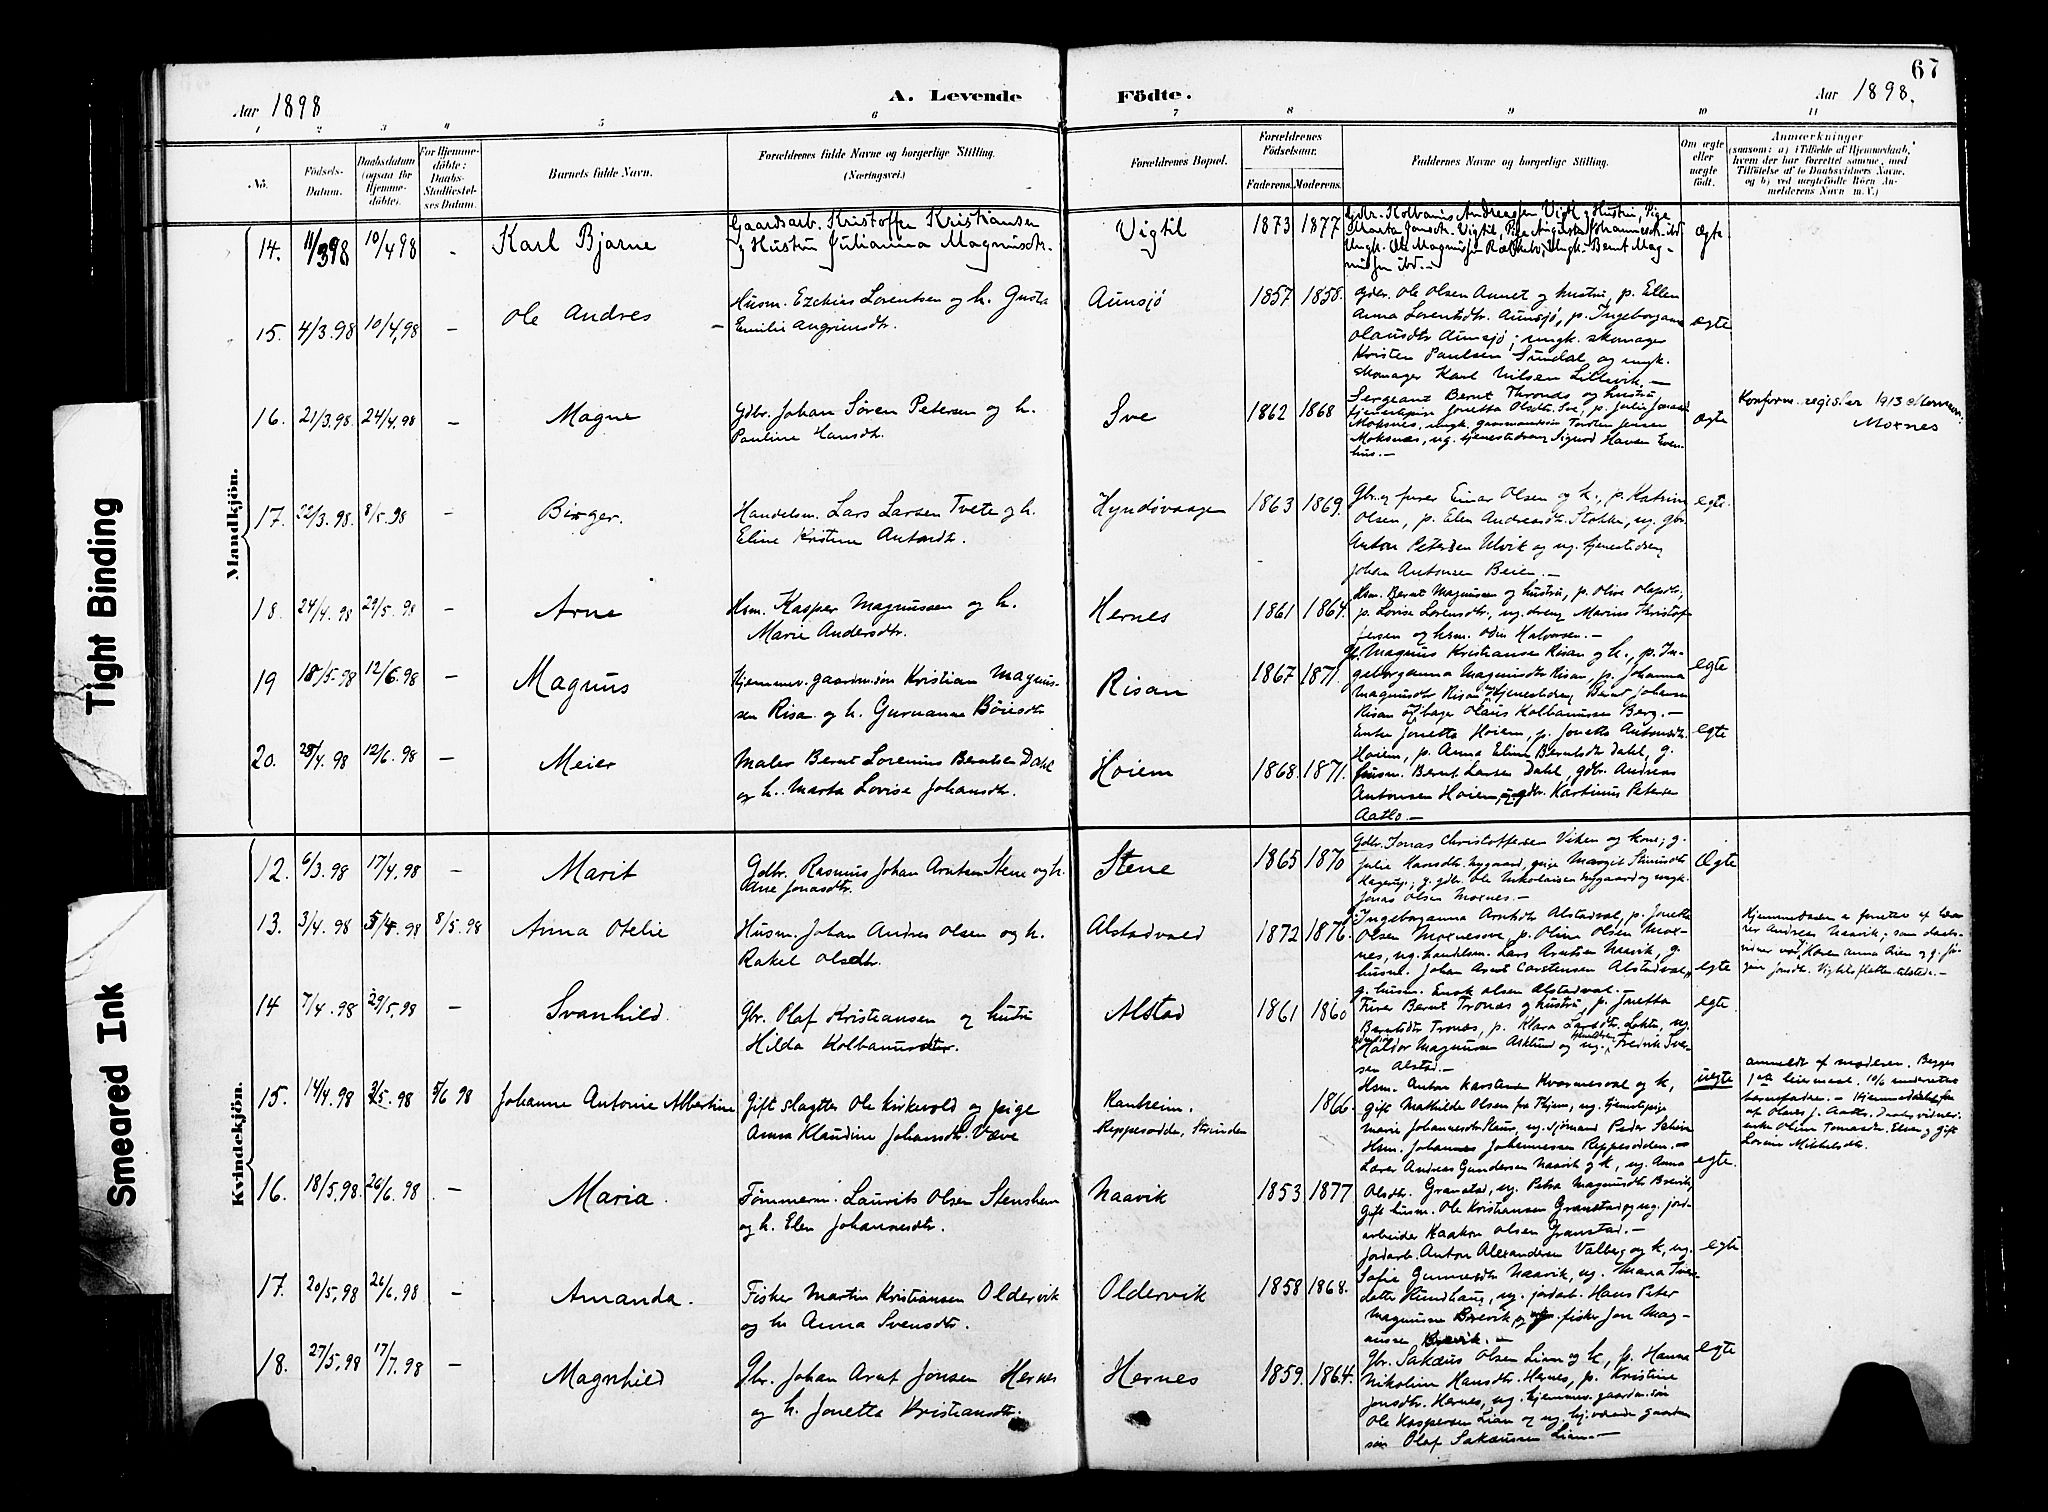 67
Aar 1898
A. Levende Födte.
Aar 1898.
1 2 3 4 5 6 7 8 9 10 11
No.
Födsels-Datum.
Daabsdatum (ogsaa for Hjemme-döbte).
For Hjemme-döbte: Daabs-Stadfæstel-ses Datum.
Barnets fulde Navn.
Forældrenes fulde Navne og borgerlige Stilling.
(Næringsvei.)
Forældrenes Bopæl.
Forældrenes Födselsaar.
Faderens. Moderens.
Faddernes Navne og borgerlige Stilling.
Om ægte eller uægte födt.
Anmærkninger
(saasom: a) i Tilfælde af Hjemmedaab,
hvem der har forrettet samme, med
Tilföielse af to Daabsvidners Navne,
og b) ved uægtefödte Börn An-
melderens Navn m. V.)
Mandkjön.
14. 11/3 98 10/4 98 - Karl Bjarne
Gaardsarb. Kristoffer Kristiansen
og Hustru Julianna Magnusdtr.
Vigtil 1873 1877
Marta Jonsdtr. Vigtil, Pige Augusta Johannesdtr. ibd
Ungk. Ole Magnussen Ungk. Bernt Mag-
nussen ibd. -
ægte
15. 4/3 98 10/4 98 - Ole Andres -
Husm. Ezekias Lorentsen og h. Gusta
Emilie
Aunsjö 1857 1858.
Gdbr. Ole Olsen Aunet og hustru, p. Ellen
Anna Lorentsdtr. Aunsjö, p. Ingeborganna
Olausdtr Aunsjö; ungk. skomager
Kristen Paulsen Sundal og ungk.
skomager Karl Nilsen Lillevik. -
ægte
16. 21/3 98. 24/4 98 - Magne
Gdbr. Johan Sören Petersen og h.
Pauline Hansdtr.
Sve 1862 1868
Sergeant Bernt Thronæs og hustru
tjenestepige Jonetta Olsdtr. Sve, p. Julie
Moksnes, ungk. gaardmandssön Torsten Jensen
Moksnæs, ug. tjenestedreng Sigurd Hansen Even-
hus. -
ægte
Konfirm. register 1913
Moxnes
17. 22/3. 98. 8/5 98 - Birger.
Handelsm. Lars Larsen Tvete og h.
Eline Kristine Antondtr.
Hyndövaagen 1863 1869.
Gbr. og furer Einar Olsen og k., p. Katrine
Olsen, p. Elen Andreasdtr. Stokke, ug. gbr.
Anton Petersen Ulvik og ug. tjenestedreng
Johan Antonsen Beien. -
egte.
18. 24/4. 98 29/5. 98 - Arne
Hsm. Kasper Magnussen og h.
Marie Andersdtr.
Hernes 1861 1864.
Hsm. Bernt Magnussen og hustru, p. Olive Olapdtr.,
p. Lovise Lorensdtr., ug. dreng Marius Kristof-
fersen og hsm. Odin Halvorsen. -
19 18/5. 98 12/6. 98 - Magnus
Hjemmev. gaardm.sön Kristian Magnus-
sen Risan og h. Gurianna Böiesdtr
Risan 1867 1871.
Gbr. Magnus Kristiansen Risan og h., p. In-
geborganna Magnusdtr Risan, p. Johanna
Magnusdtr Risan, tjenestedreng Bernt Johansen
Risan og bager Olaus Kolbanussen Berg. -
egte
20. 28/4 98 12/6. 98 - Meier
Maler Bernt Lorenius Berntsen Dahl
og h. Marta Lovise Johansdtr.
Höiem 1868. 1871.
Enke Jonetta Höiem, p. Jonetta Antonsdtr.
Höiem, p. Anna Eline Berntsdtr Dahl, g.
husm. Bernt Larsen Dahl, gdbr. Andreas
Antonsen Höiem, og gdbr. Kartinus Petersen
Aatlo. -
egte
Kvindekjön.
12. 6/3. 98 17/4. 98 - Marit
Gdbr. Rasmus Johan Arntsen Stene og h.
Ane Jonasdtr.
Stene 1865 1870
Gdbr. Jonas Christoffersen Viken og kone; g.
Julie Hansdtr. Nygaard, pige Margit
g. gdbr. Ole Nikolaisen Nygaard og ungk.
Jonas Olsen Moxnes. -
Ægte
13. 3/4. 98 98 8/5. 98 Anna Otelie
Husm. Johan Andres Olsen og h.
Rakel Olsdtr.
Alstadvald 1872 1876.
Ingeborganna Arntsdtr Alstadval, p. Jonetta
Olsen Moxnesove, p. Oline Olsen Mox-
nes, ug. handelsm. Lars Arntsen Naavik, g.
husm. Johan Arnt Carstensen Alstadval,
g. husm. Enok Olsen Alstadval. -
egte
Hjemmedaaben er foretat af lær-
er Andreas Naavik; som daabs-
vidner var Karen Anna Aien og g.
Jonsdtr. Vigtilsflatten tilstede. -
14 7/4. 98 29/5. 98 - Svanhild.
Gbr. Olaf Kristiansen og hustru
Hilda Kolbanusdtr.
Alstad 1861 1860
Furer Bernt Tronæs og hustru, p. Jonetta
Berntsdtr Tronæs, p. Klara Larsdtr. ug.
Haldor Magnussen Asklund og ug. Fredrik Iver-
sen Alstad. -
egte.
15. 14/4. 98 98 5/6 98 Johanne Antonie Albertine
Gift slagter Ole Kirkevold og pige
Anna Klaudine Johansdtr. Væve
Ranheim.
Reppesödden, Strinden
1866.
Hsm. Anton Karstensen Kvarmesval og k,
gift Mathilde Olsen fra Thjem, ug. tjenestepige
Marie Johannesdtr Raus, ug. sjömand Peder
Hsm. Johannes Johannessen Reppesodden. -
uegte
anmeldt af moderen. Begges
1ste leiermaal. 10/6 underrettet
barnefaderen. - Hjemmedöbt
af Olaus J. Aatlo. Daabsvidner:
enke Oline Tomasdtr. Elven og gift
Lovise Mikkelsdtr.
16. 18/5. 98. 26/6. 98 - Maria.
Tömmerm. Laurits Olsen Stenshem
og h. Elen Johannesdtr.
Naavik 1853 1877
Lærer Andreas Gundersen Naavik og k, ug. Anna
Olsdtr. Granstad, ug. Petra Magnusdtr Brevik,
Gift husm. Ole Kristiansen Granstad og ug. jord-
arbeider Haakon Olsen Granstad. -
egte.
17. 20/5. 98 26/6. 98 - Amanda.
Fisker Martin Kristiansen Oldervik
og h. Anna Svensdtr.
Oldervik 1858 1868.
Jordarb. Anton Alexandersen Valberg og k, ug.
Sofie Gunnersdtr Naavik, ug. Maria Iver-
datter Hundhaug, ug. jordarb. Hans Peter
Magnussen Brevik, og fisker Jon Mag-
nussen Brevik. -
egte
18. 27/5. 98 17/7. 98 - Magnhild
Gbr. Johan Arnt Jonsen Hernes
og h. Jonetta Kristiansdtr.
Hernes 1859. 1864.
Gbr. Sakæus Olsen Lian og k, p. Hanna
Nikoline Hansdtr. Hernes, p. Kristine
Jonsdtr. Hernes, ug. hjemmev. gaardm.sön
Ole Kaspersen Lian og ug. hj.værende gaardm.
sön Olaf Sakæussen Lian. -
egte
Tight Binding
Smeared Ink